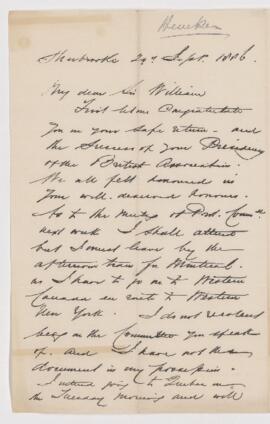 Heneker
Sherbrooke 29th Sept. 1886.
My dear Sir William
First let me Congratulate
you on your safe return - and
the Success of your Presidency
of the British Association.
We all felt honoured in
your well-deserved honours.
As to the Meeting of Prot. Comee
next week I shall attend
but I must leave by the
afternoon train for Montreal
as I have to go on to Western
Canada en route to Western
New York. I do not recollect
being on the Committee you speak
of. and I have not the
document in my possession.
I intend going to Quebec on
the Tuesday morning and will